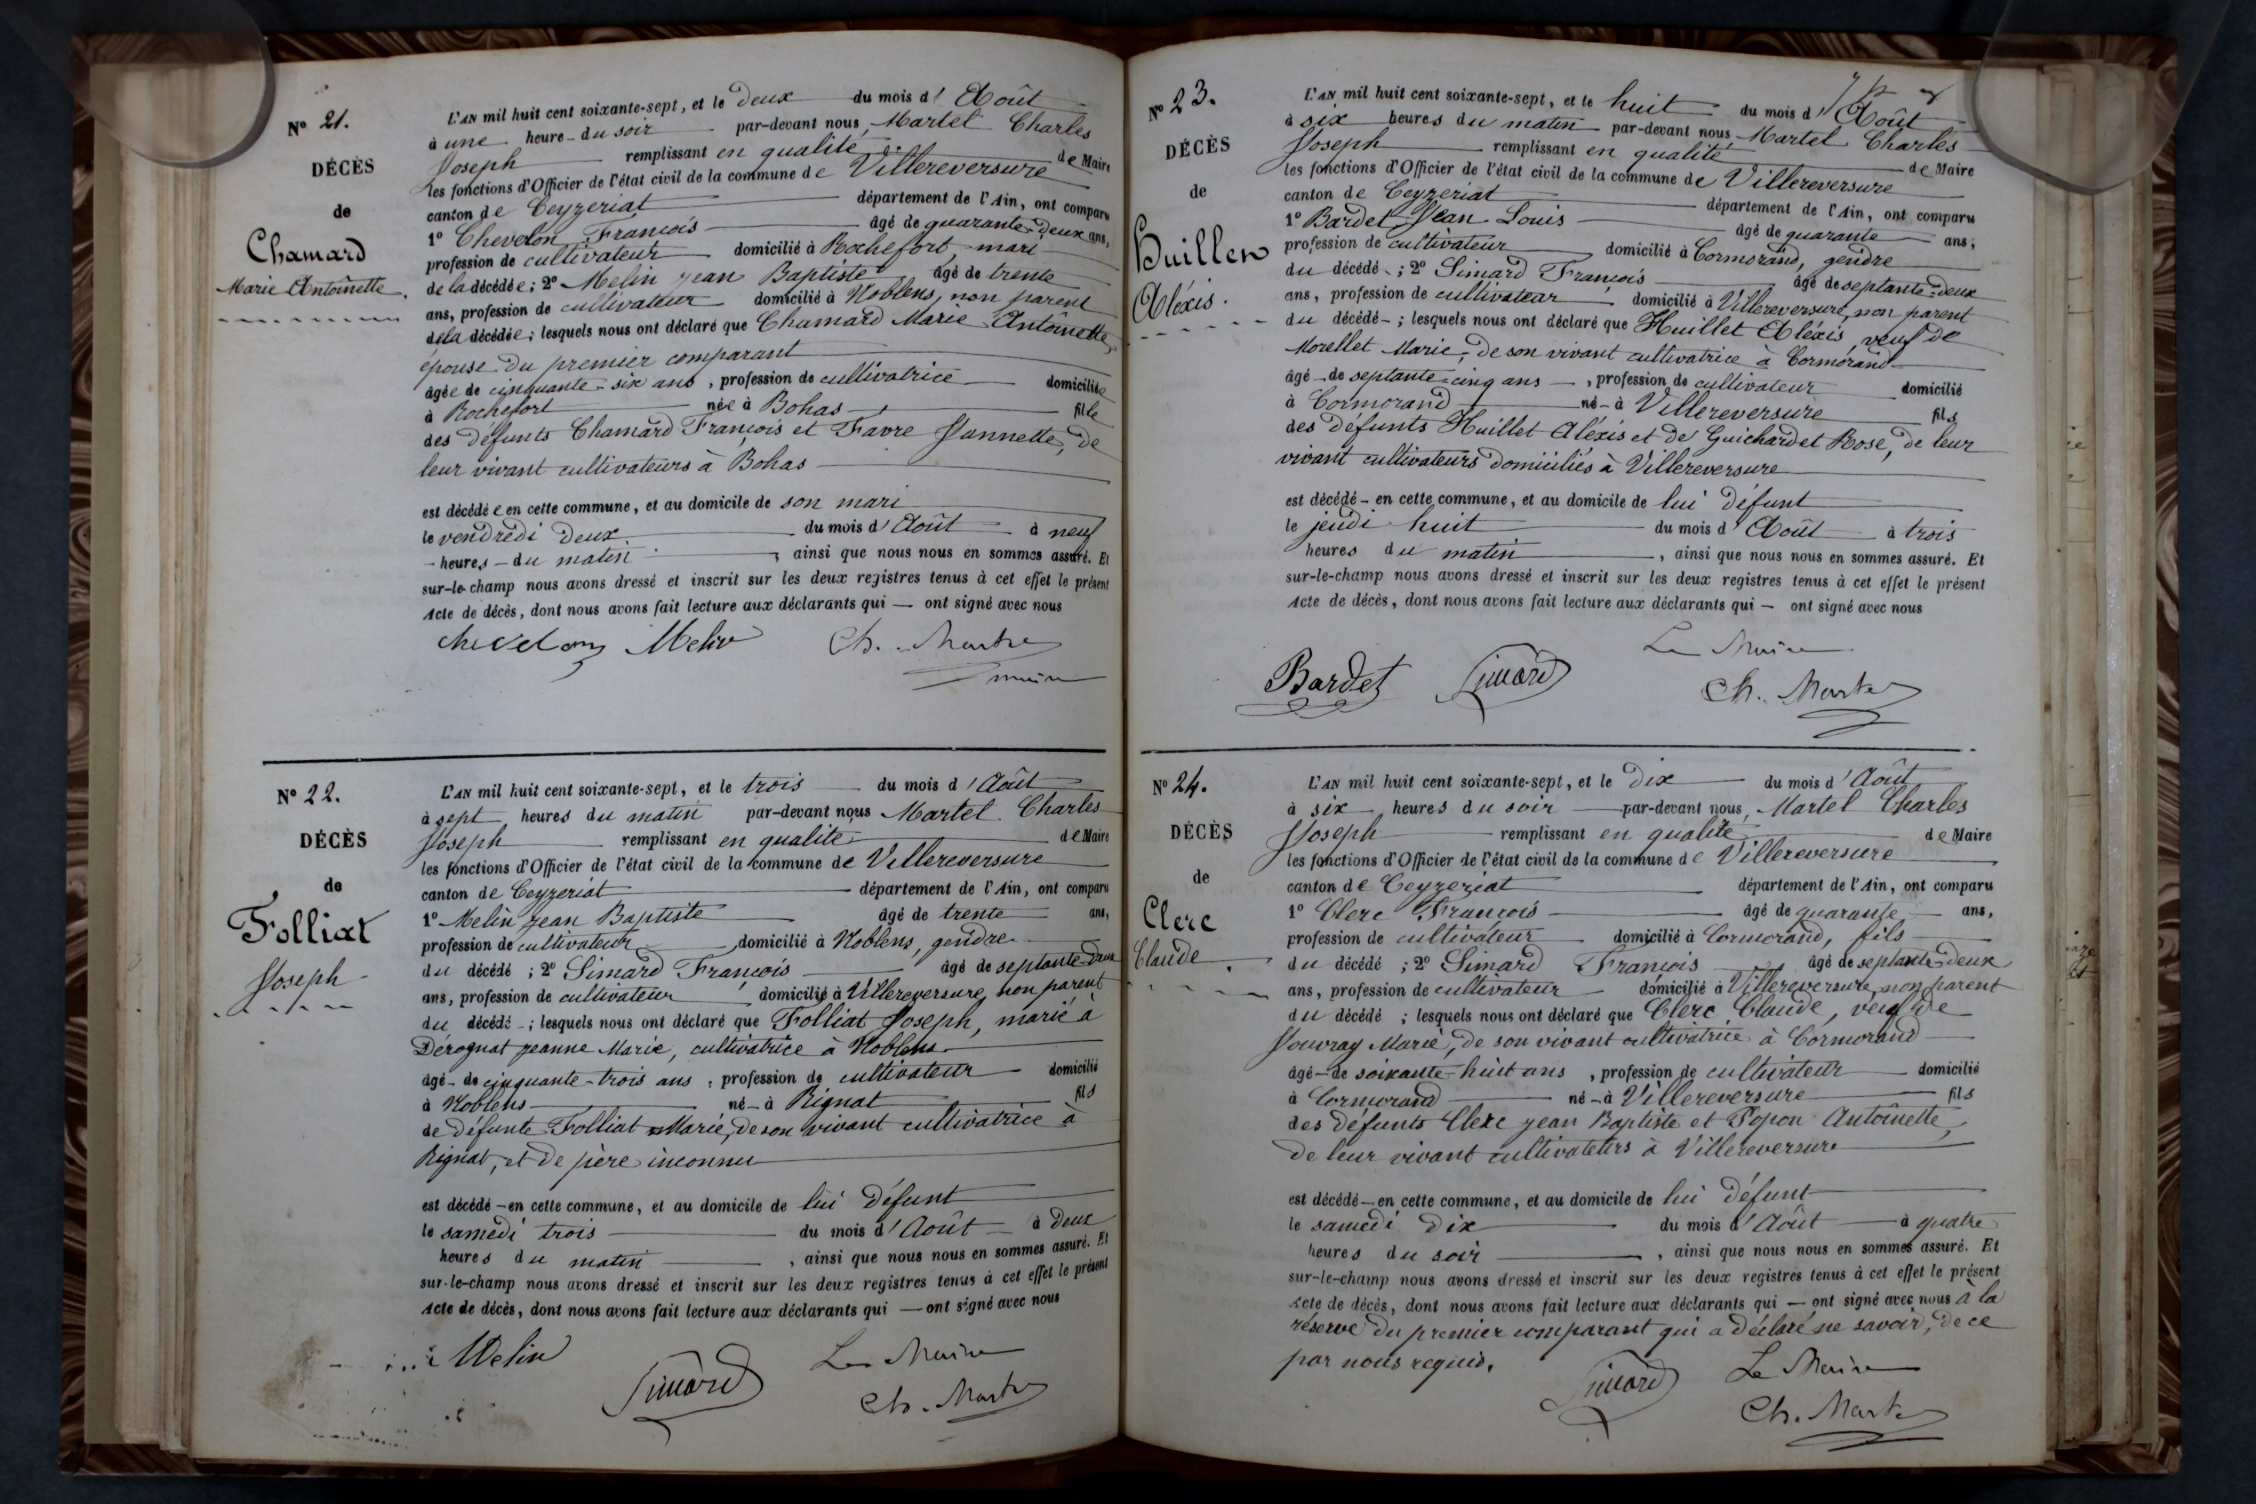 Nº 21.
DÉCÈS
de
Chamard
Marie Antoînette.
L'AN mil huit cent soixante-sept, et le deux du mois d' Août
à une heure du soir par-devant nous, Martel Charles
Joseph remplissant en qualité de Maire
les fonctions d'Officier de l'état civil de la commune de Villereversure
canton de Ceyzeriat département de l'Ain, ont comparu
1º Chevelon François âgé de quarante-deux ans,
profession de cultivateur domicilié à Rochefort, mari
de la décédée; 2º Melin jean Baptiste âgé de trente
ans, profession de cultivateur domicilié à Noblens, non parent
de la décédée; lesquels nous ont déclaré que Chamard Marie Antoînette,
épouse du premier comparant
âgée de cinquante-six ans, profession de cultivatrice domiciliée
à Rochefort née à Bohas fille
des défunts Chamard François et Favre Jannette, de
leur vivant cultivateurs à Bohas
est décédée en cette commune, et au domicile de son mari
le vendredi deux du mois d'Août à neuf
heures du matin, ainsi que nous nous en sommes assuré. Et
sur-le-champ nous avons dressé et inscrit sur les deux registres tenus à cet effet le présent
Acte de décès, dont nous avons fait lecture aux déclarants qui — ont signé avec nous
Chevelon Melin Ch. Martel
maire
Nº 22.
DÉCÈS
de
Folliat
Joseph
L'AN mil huit cent soixante-sept, et le trois du mois d'Août
à sept heures du matin par-devant nous Martel Charles
Joseph remplissant en qualité de Maire
les fonctions d'Officier de l'état civil de la commune de Villereversure
canton de Ceyzeriat département de l'Ain, ont comparu
1º Melin jean Baptiste âgé de trente ans,
profession de cultivateur domicilié à Noblens, gendre
du décédé; 2º Simard François âgé de septante-deux
ans, profession de cultivateur domicilié à Villereversure, non parent
du décédé; lesquels nous ont déclaré que Folliat Joseph, marié à
Dérognat jeanne Marie, cultivatrice à Noblens
âgé de cinquante-trois ans, profession de cultivateur domicilié
à Noblens né à Rignat fils
de défunte Folliat Marie, de son vivant cultivatrice à
Rignat, et de père inconnu
est décédé en cette commune, et au domicile de lui défunt
le samedi trois du mois d'Août à deux
heures du matin, ainsi que nous nous en sommes assuré. Et
sur-le-champ nous avons dressé et inscrit sur les deux registres tenus à cet effet le présent
Acte de décès, dont nous avons fait lecture aux déclarants qui — ont signé avec nous
Melin Simard Le Maire
Ch. Martel
Nº 23.
DÉCÈS
de
Huillet
Aléxis.
L'AN mil huit cent soixante-sept, et le huit du mois d'Août
à six heures du matin par-devant nous Martel Charles
Joseph remplissant en qualité de Maire
les fonctions d'Officier de l'état civil de la commune de Villereversure
canton de Ceyzeriat département de l'Ain, ont comparu
1º Bardet Jean Louis âgé de quarante ans,
profession de cultivateur domicilié à Cormorand, gendre
du décédé; 2º Simard François âgé de septante-deux
ans, profession de cultivateur domicilié à Villereversure, non parent
du décédé; lesquels nous ont déclaré que Huillet Aléxis, veuf de
Morellet Marie, de son vivant cultivatrice à Cormorand
âgé de septante-cinq ans, profession de cultivateur domicilié
à Cormorand né à Villereversure fils
des défunts Huillet Aléxis et de Guichardet Rose, de leur
vivant cultivateurs domiciliés à Villereversure
est décédé en cette commune, et au domicile de lui défunt
le jeudi huit du mois d'Août à trois
heures du matin, ainsi que nous nous en sommes assuré. Et
sur-le-champ nous avons dressé et inscrit sur les deux registres tenus à cet effet le présent
Acte de décès, dont nous avons fait lecture aux déclarants qui — ont signé avec nous
Le Maire
Bardet Simard Ch. Martel
Nº 24.
DÉCÈS
de
Clerc
Claude.
L'AN mil huit cent soixante-sept, et le dix du mois d'Août
à six heures du soir par-devant nous, Martel Charles
Joseph remplissant en qualité de Maire
les fonctions d'Officier de l'état civil de la commune de Villereversure
canton de Ceyzeriat département de l'Ain, ont comparu
1º Clerc François âgé de quarante ans,
profession de cultivateur domicilié à Cormorand, fils
du décédé; 2º Simard François âgé de septante-deux
ans, profession de cultivateur domicilié à Villereversure, non parent
du décédé; lesquels nous ont déclaré que Clerc Claude, veuf de
Jouvray Marie, de son vivant cultivatrice à Cormorand
âgé de soixante-huit ans, profession de cultivateur domicilié
à Cormorand né à Villereversure fils
des défunts Clerc jean Baptiste et Popon Antoînette,
de leur vivant cultivateurs à Villereversure
est décédé en cette commune, et au domicile de lui défunt
le samedi dix du mois d'Août à quatre
heures du soir, ainsi que nous nous en sommes assuré. Et
sur-le-champ nous avons dressé et inscrit sur les deux registres tenus à cet effet le présent
Acte de décès, dont nous avons fait lecture aux déclarants qui — ont signé avec nous à la
réserve du premier comparant qui a déclaré ne savoir, de ce
par nous requis.
Simard Le Maire
Ch. Martel